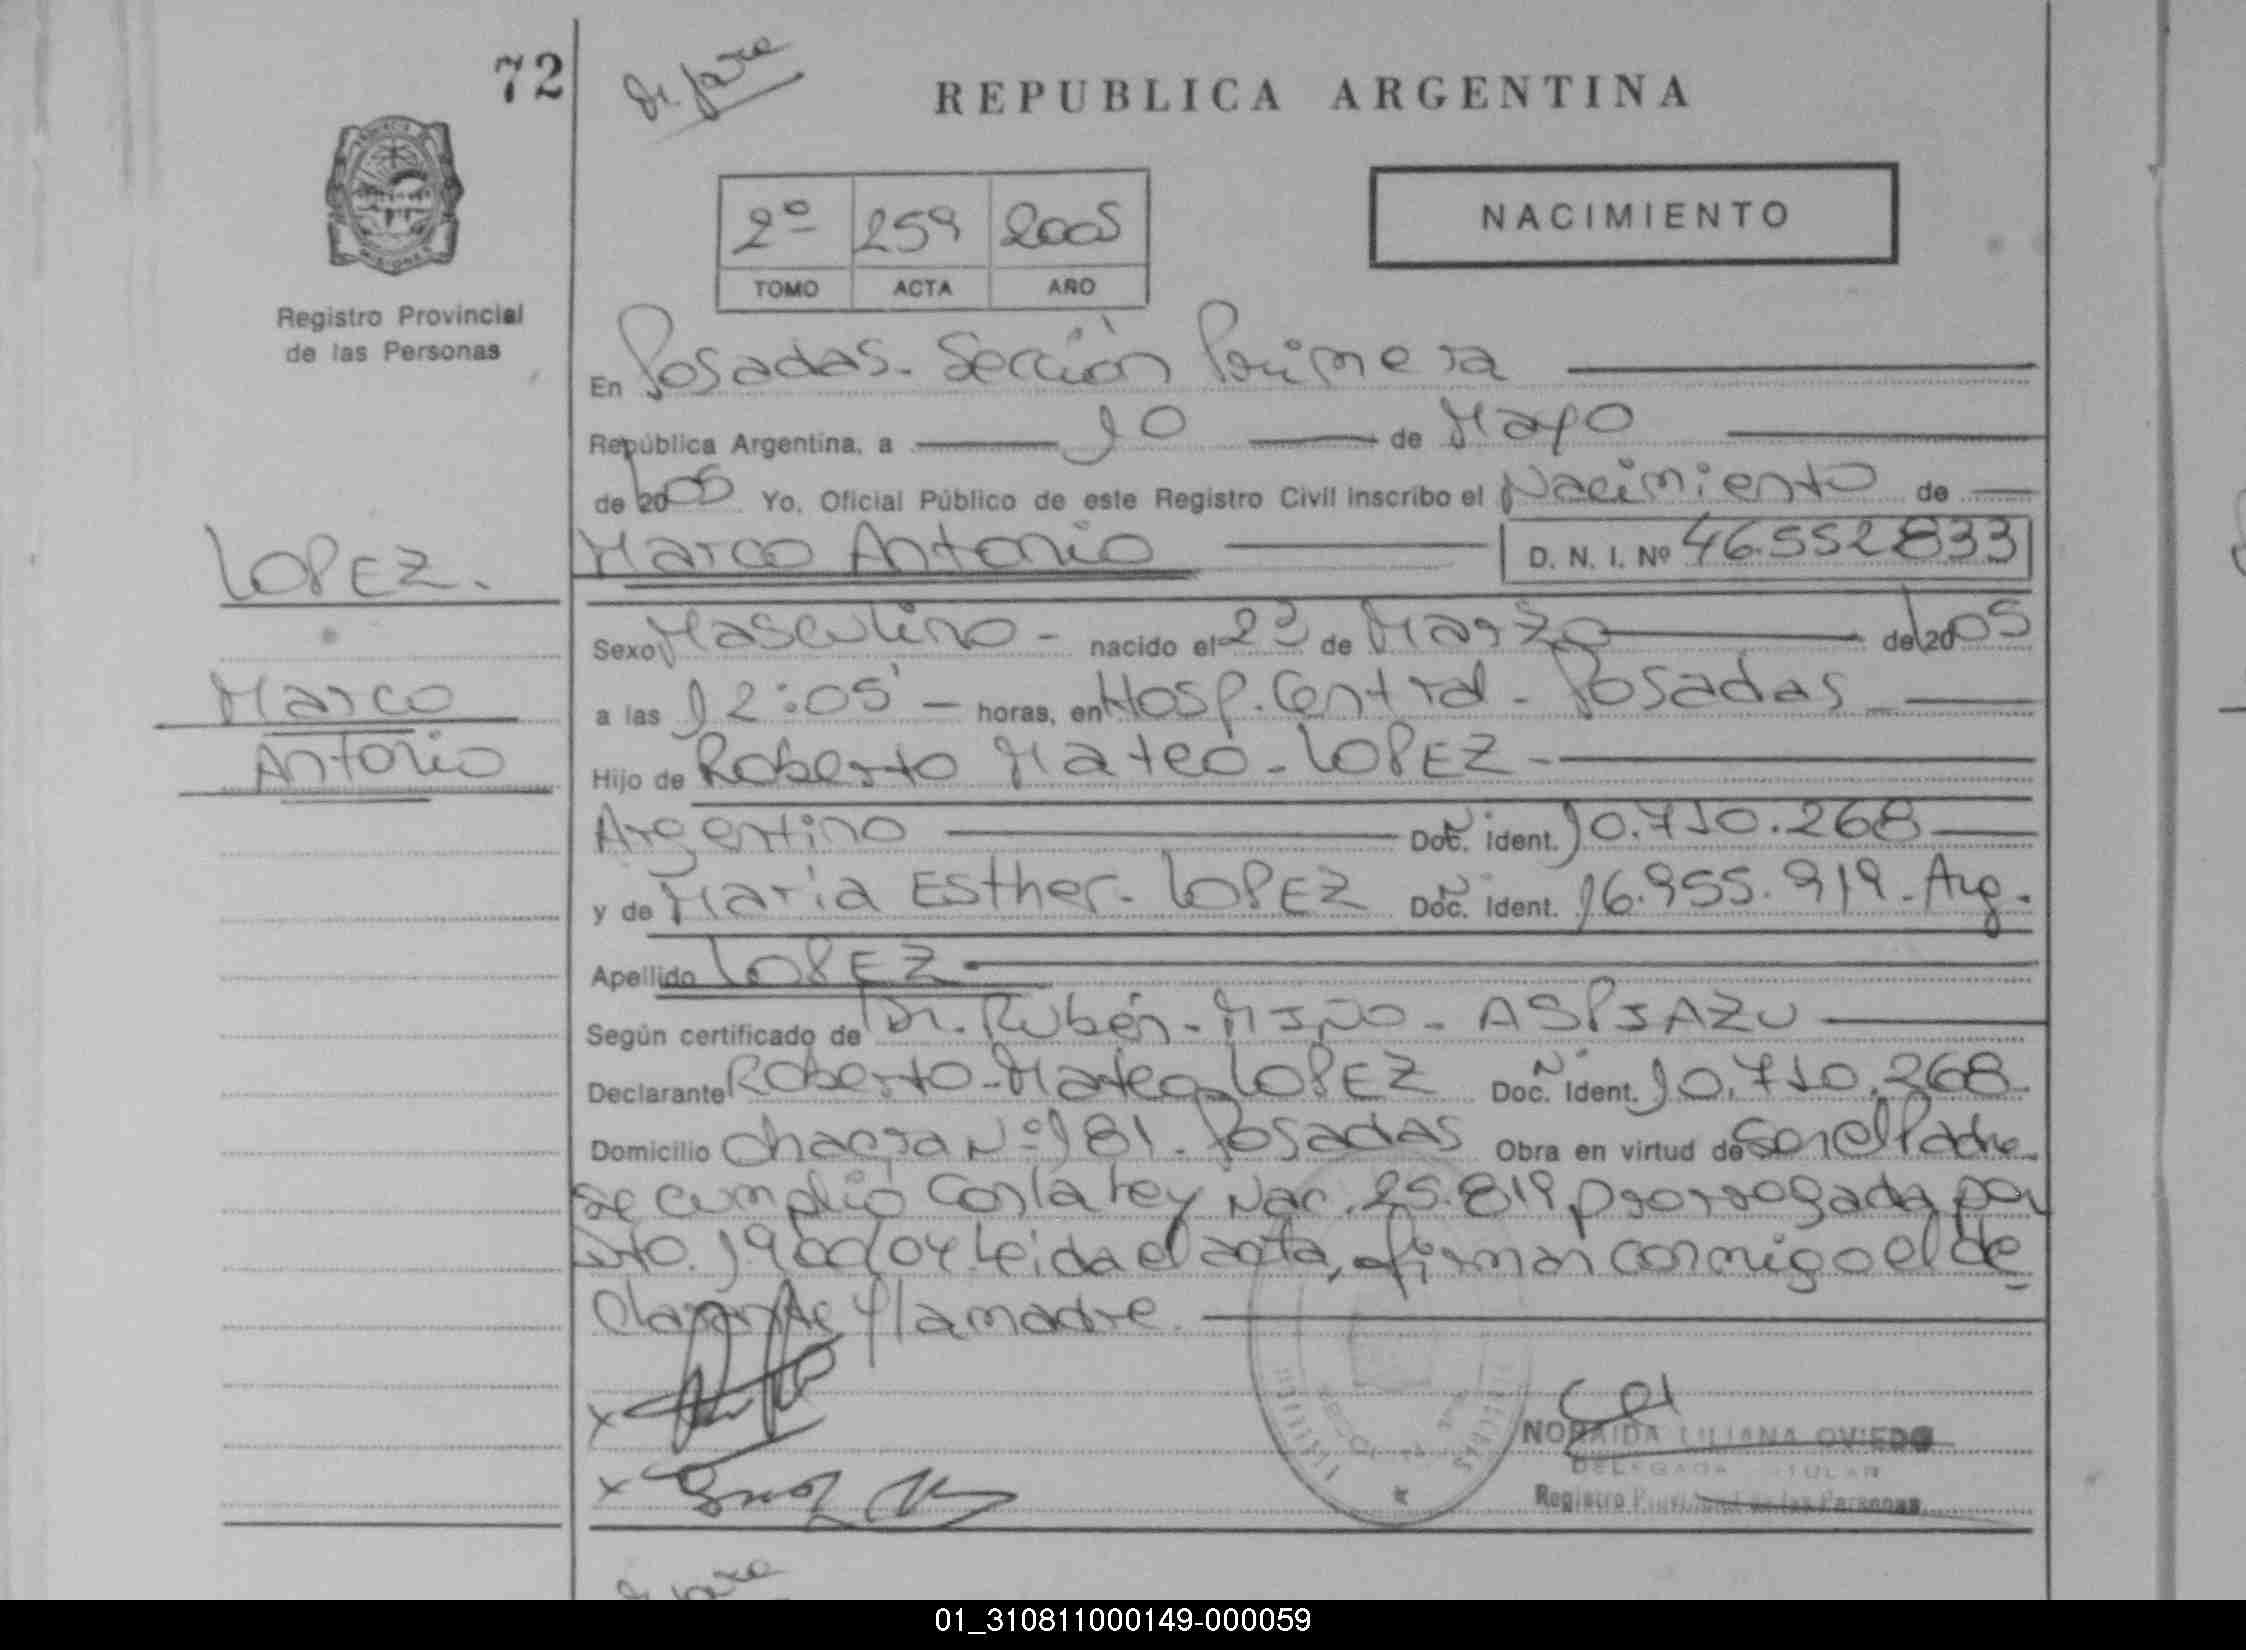 72
REPUBLICA ARGENTINA
NACIMIENTO
2º 259 2005
TOMO ACTA AÑO
Registro Provincial
de las Personas
En Posadas. Sección Primera
República Argentina, a 10 de Mayo
de 2005 Yo, Oficial Público de este Registro Civil inscribo el Nacimiento de
Marco Antonio D. N. I. Nº 46.552833
LOPEZ.
Marco
Antonio
Sexo Masculino - nacido el de Marzo de 2005
a las 12:05' - horas, en Hosp. Central - Posadas
Hijo de Roberto Mateo - LOPEZ -
Argentino Doc. Ident. 10.710.268
y de Maria Esther - LOPEZ Doc. Ident. 16.955.919 - Arg.
Apellido LOPEZ
Según certificado de Dr. Rubén - MIÑO - ASPIAZU
Declarante Roberto - Mateo - LOPEZ Doc. Ident. 10.710.268
Domicilio Chacra Nº 181 - Posadas Obra en virtud de Ser el Padre
se cumplió con la Ley Nac. 25.819 prorrogada por
Dto. 1900/04 Leida el acta, firman conmigo el de
clarante y la madre.
NORAIDA LILIANA OVIEDO
DELEGADA TITULAR
Registro Provincial de las Personas
01_310811000149-000059